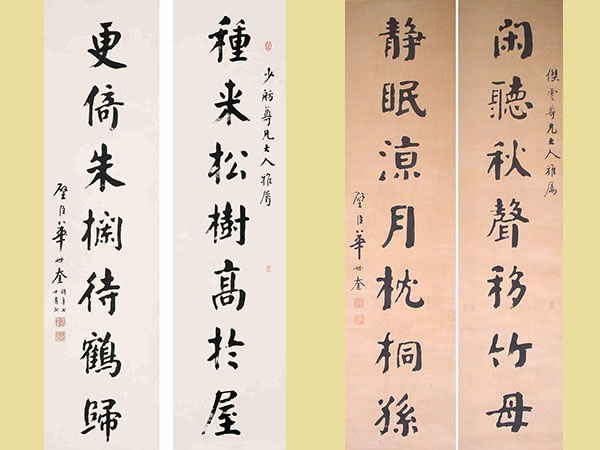 傑雲尊兄大人雅属
閑聽秋聲移竹母
静眠涼月枕桐孫
璧臣華世奎
少舫尊兄大人雅屬
種来松樹高於屋
更倚朱欄待鶴歸
璧臣華世奎
時年七
十有七